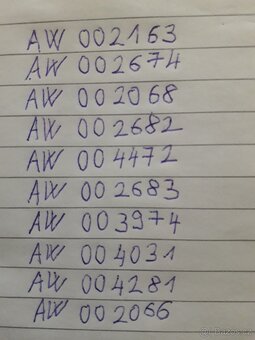 AW 002163
AW 002674
AW 002068
AW 002682
AW 004472
AW 002683
AW 003974
AW 004031
AW 004281
AW 002066